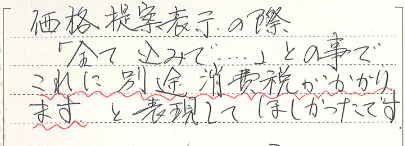 価格提案表示の際
「全て込みで……」との事で
これに別途消費税がかかり
ます と表現してほしかったです